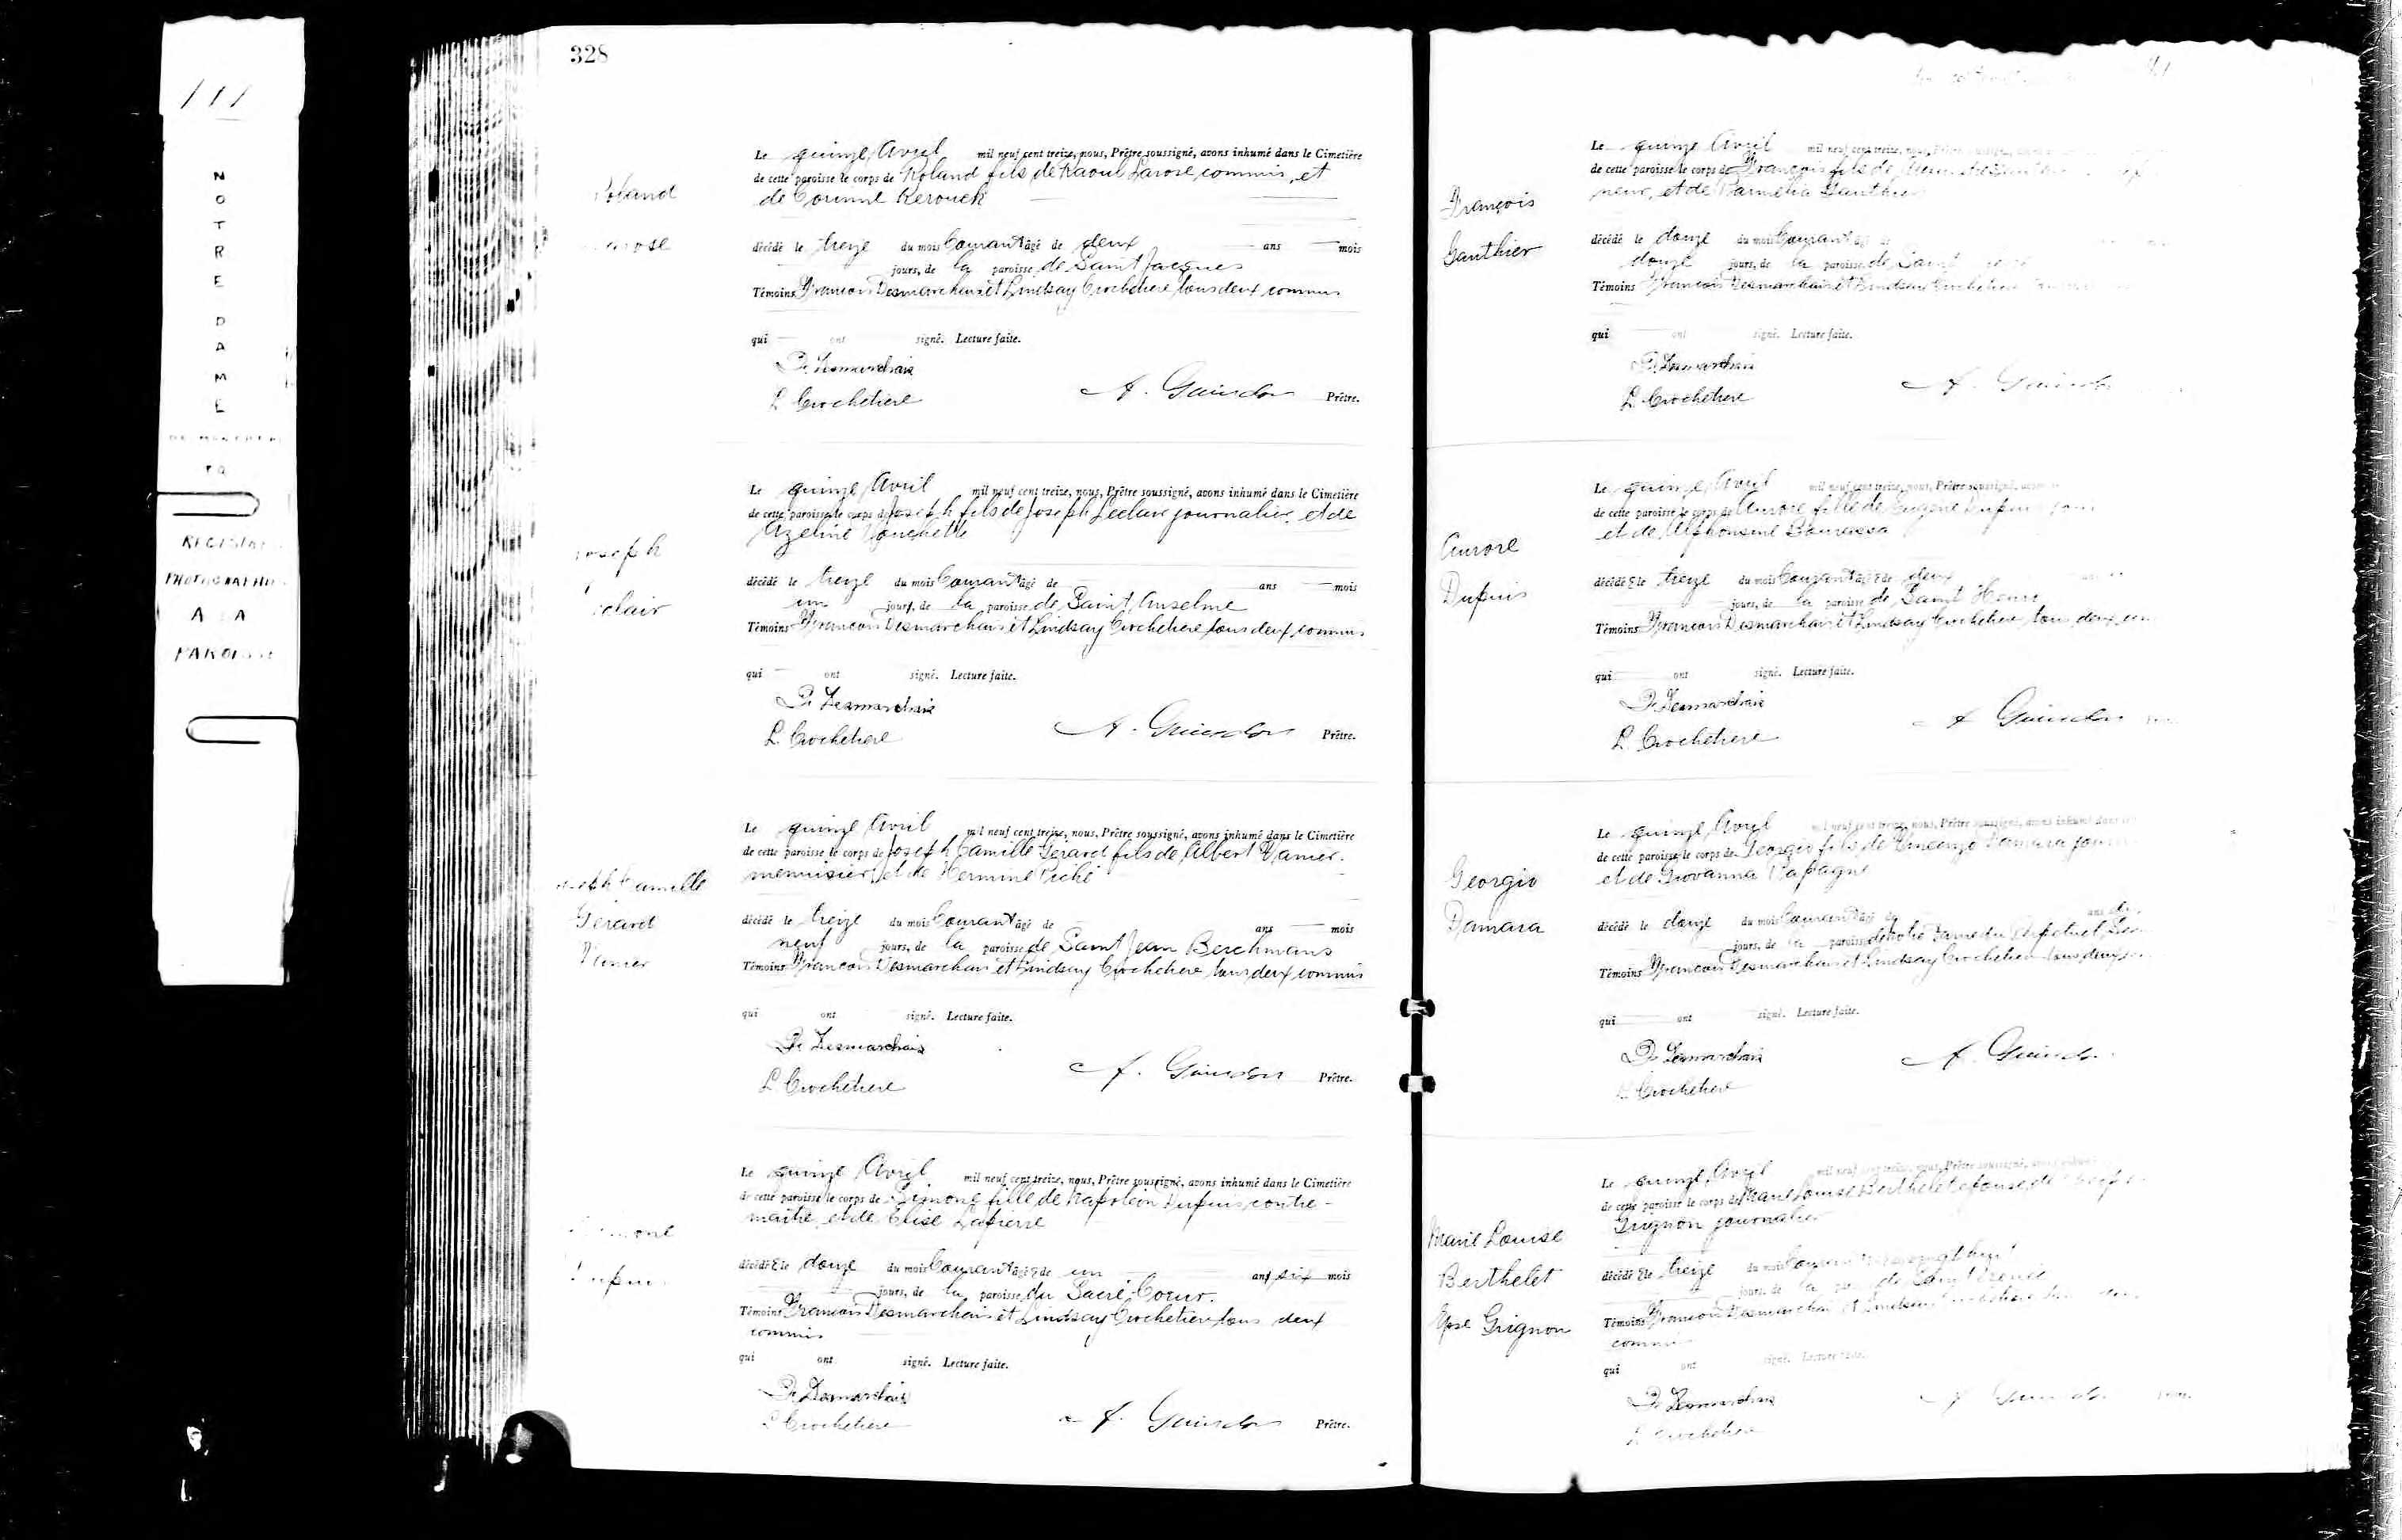 111
NOTRE DAME
REGISTRE
PHOTOGRAPHIE
A LA
PAROISSE
328
Le quinze Avril mil neuf cent treize, nous, Prêtre soussigné, avons inhumé dans le Cimetière
de cette paroisse le corps de Roland fils de Raoul Larose, commis, et
de Corinne Kerouck
décédé le treize du mois Courant âgé de deux ans mois
jours, de la paroisse de Saint Jacques
Témoins François Desmarchais et Lindsay Crochetiere tous deux commis
qui ont signé. Lecture faite.
F. Desmarchais
L. Crochetiere
A. Guindon Prêtre.
Le quinze Avril mil neuf cent treize, nous, Prêtre soussigné, avons inhumé dans le Cimetière
de cette paroisse le corps de Joseph fils de Joseph Leclair journalier, et de
Azeline Pouchette
décédé le treize du mois Courant âgé de ans mois
un jours, de la paroisse de Saint Anselme
Témoins François Desmarchais et Lindsay Crochetiere tous deux commis
qui ont signé. Lecture faite.
F. Desmarchais
L. Crochetiere
A. Guindon Prêtre.
Le quinze Avril mil neuf cent treize, nous, Prêtre soussigné, avons inhumé dans le Cimetière
de cette paroisse le corps de Joseph Camille Gérard fils de Albert Vanier
menuisier, et de Hermine Piché
Gérard
décédé le treize du mois Courant âgé de ans mois
neuf jours, de la paroisse de Saint Jean Berchmans
Témoins François Desmarchais et Lindsay Crochetiere tous deux commis
qui ont signé. Lecture faite.
F. Desmarchais
L. Crochetiere
A. Guindon Prêtre.
Le quinze Avril mil neuf cent treize, nous, Prêtre soussigné, avons inhumé dans le Cimetière
de cette paroisse le corps de Simone fille de Napoléon Dupuis, contre-
maître, et de Elise Lapierre
décédéE le douze du mois Courant âgée de un an, six mois
jours, de la paroisse du Sacré-Coeur.
Témoins François Desmarchais et Lindsay Crochetiere tous deux
commis
qui ont signé. Lecture faite.
F. Desmarchais
L. Crochetiere
A. Guindon Prêtre.
Le quinze Avril mil neuf cent treize, nous,
de cette paroisse le corps de François fils de
neur, et de Parmélia Gauthier
François
Gauthier
décédé le douze du mois Courant
douze jours, de la paroisse de Saint
Témoins François Desmarchais et Lindsay Crochetiere
qui ont signé. Lecture faite.
F. Desmarchais
L. Crochetiere
A. Guindon
Le quinze Avril mil neuf cent treize, nous, Prêtre soussigné,
de cette paroisse le corps de Aurore fille de Eugène Dupuis
et de Alphonsine Bourassa
Aurore
Dupuis
décédéE le treize du mois Courant âgéE de deux
jours, de la paroisse de Saint Henri
Témoins François Desmarchais et Lindsay Crochetiere tous deux
qui ont signé. Lecture faite.
F. Desmarchais
L. Crochetiere
A. Guindon
Le quinze Avril mil neuf cent treize, nous, Prêtre soussigné, avons inhumé dans
de cette paroisse le corps de Georgio fils de Vincenzo Damara
et de Giovanna Papagne
Georgio
Damara
décédé le douze du mois Courant âgé de ans
jours, de la paroisse de Notre Dame du Perpetuel
Témoins François Desmarchais et Lindsay Crochetiere tous deux
qui ont signé. Lecture faite.
F. Desmarchais
L. Crochetiere
A. Guindon
Le quinze Avril mil neuf cent treize, nous, Prêtre soussigné,
de cette paroisse le corps de Marie Louise Berthelet épouse de
Grignon journalier
Marie Louise
Berthelet
Epse Grignon
décédéE le treize du mois Courant
jours, de la
Témoins François Desmarchais et Lindsay
commis
qui ont signé. Lecture faite.
F. Desmarchais
L. Crochetiere